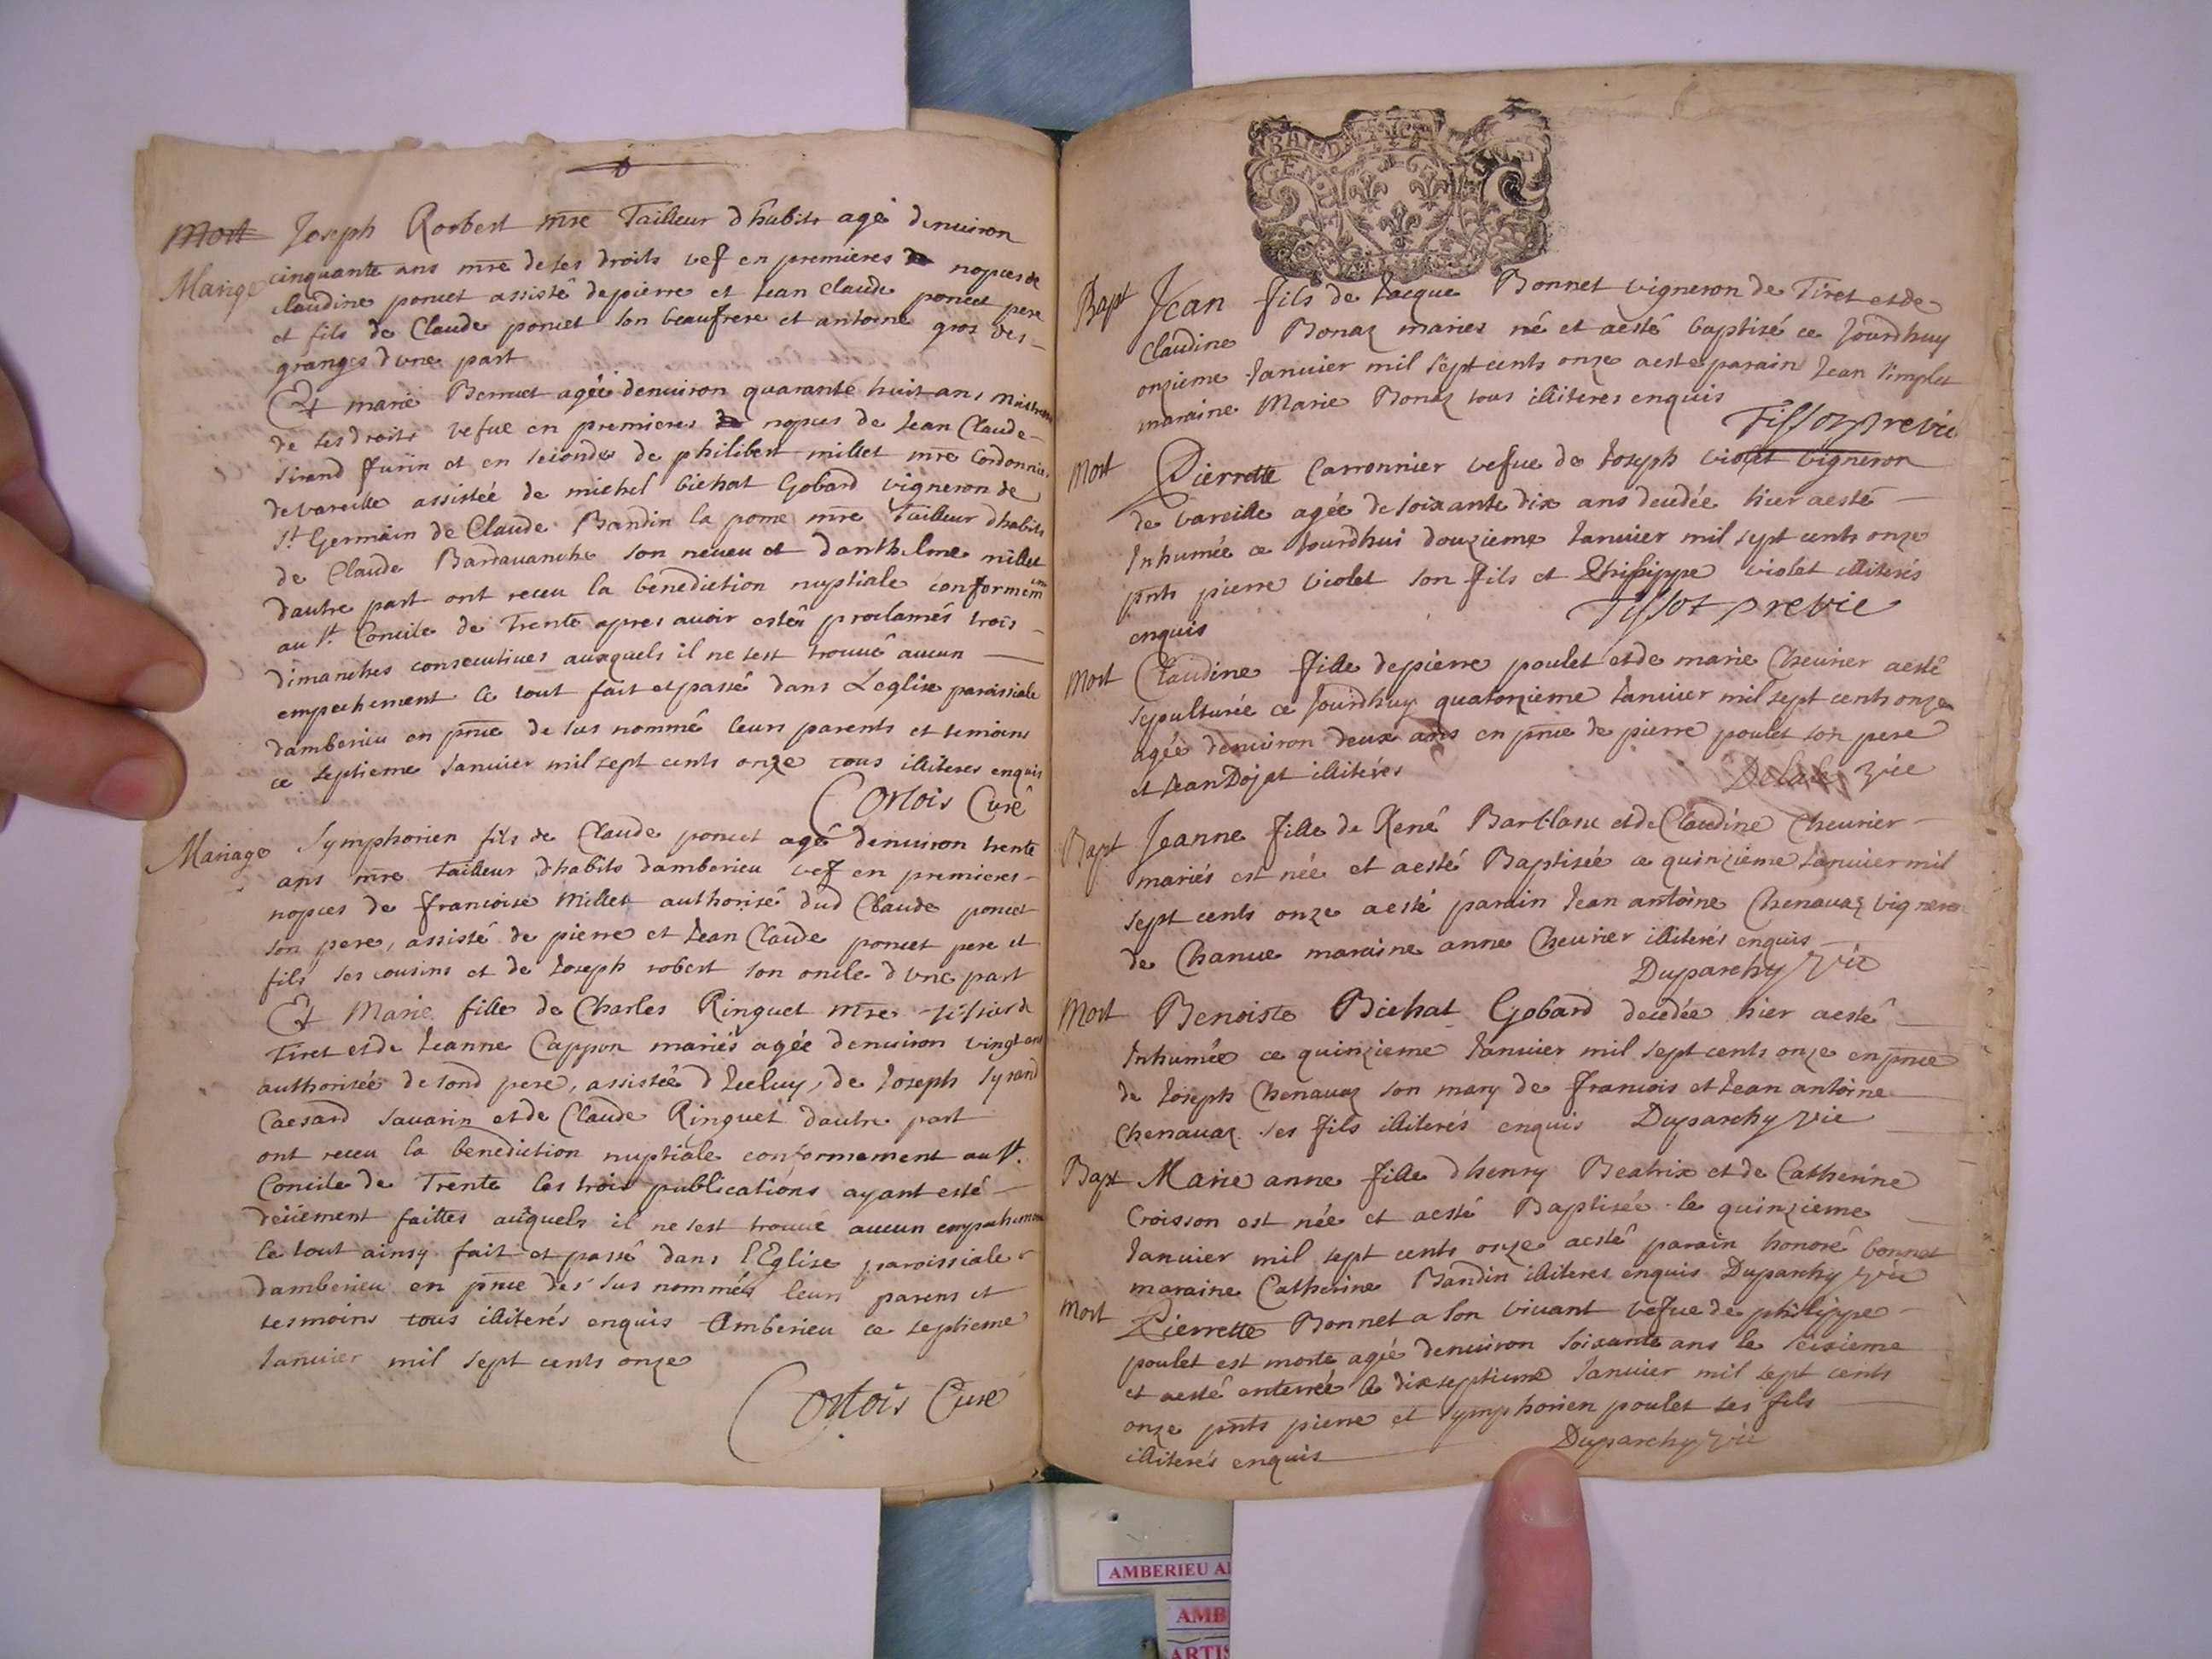 Mort Joseph Roobert mre Tailleur dhabits agé denuiron
Mariage cinquante ans mre de ses droits vef en premieres nopces de
claudine poncet assisté de pierre et Jean claude poncet pere
et fils de Claude poncet son beaufrere et antoine gros des
granges dvne part
Et marie Bernuet agée denuiron quarante huit ans
de ses droits vefue en premieres nopces de Jean Claude
Sirand ffurin et en secondes de philibert millet mre Cordonnier
de vareille assistée de michel bichat Gobard vigneron de
St Germain de Claude Bandin la pome mre Tailleur dhabits
de Claude Bardauanche son neueu et danthelme millet
dautre part ont receu la benediction nuptiale conformem
au St Concile de Trente apres auoir esté proclamés trois
dimanches consecutiues auxquels il ne sest trouué aucun
empechement le tout fait et passé dans Leglise paroissiale
damberieu en pnce de sus nommé leurs parents et temoins
ce septieme Januier mil sept cents onze tous illiteres enquis
Cortois Curé
Mariage Symphorien fils de Claude poncet agé denuiron trente
ans mre tailleur dhabits damberieu vef en premieres
nopces de francoise Millet authorisé dud Claude poncet
son pere, assisté de pierre et Jean Claude poncet pere et
fils ses cousins et de Joseph robert son oncle dvne part
Et Marie fille de Charles Ringuet mre tissier de
Tiret et de Jeanne Cappon mariés agée denuiron vingt ans
authorisée de sond pere, assistée dIceluy, de Joseph Syrand
Caesard Sauarin et de Claude Ringuet dautre part
ont receu la benediction nuptiale conformement au St.
Concile de Trente les trois publications ayant esté
deüement faittes auquels il ne sest trouué aucun empechement
le tout ainsy fait et passé dans lEglise paroissiale
damberieu en pnce des sus nommés leurs parens et
tesmoins tous illiterés enquis Amberieu ce septieme
Januier mil sept cents onze
Cortois Curé
Bapt Jean fils de Jacque Bonnet vigneron de Tiret et de
Claudine Bonaz maries né et aesté baptizé ce Jourdhuy
onzieme Januier mil sept cents onze aeste parain Jean Simplet
maraine Marie Bonaz tous illiteres enquis
Tissot pre vic
Mort Pierrette Carronnier vefue de Joseph violet vigneron
de vareille agée de soixante dix ans decedée hier aesté
Inhumée ce Jourdhui douzieme Januier mil sept cents onze
pnts pierre violet son fils et Philippe violet illiterés
enquis Tissot pre vic
Mort Claudine fille de pierre poulet et de marie Cheurier aesté
sepulturée ce Jourdhuy quatorzieme Januier mil sept cents onze
agée denuiron deux ans en pnce de pierre poulet son pere
et Jean Dojat illiterés vic
Bapt Jeanne fille de René Barblanc et de Claudine Cheurier
mariés est née et aesté Baptisée ce quinzieme Januier mil
sept cents onze aesté parain Jean antoine Chenauaz vigneron
de Chanue maraine anne Cheurier illiterés enquis
Duparchy vic
Mort Benoiste Bichat Gobard decedée hier aesté
Inhumée ce quinzieme Januier mil sept cents onze en pnce
de Joseph Chenauaz son mary de francois et Jean antoine
Chenauaz ses fils illiterés enquis Duparchy vic
Bapt Marie anne fille dhenry Beatrix et de Catherine
Croisson est née et aesté Baptisée le quinzieme
Januier mil sept cents onze aesté parain honoré bonnet
maraine Catherine Bandin illiteres enquis Duparchy vic
Mort Pierrette Bonnet a son viuant vefue de philippe
poulet est morte agée denuiron soixante ans le seizieme
et aesté enterrée le dixseptieme Januier mil sept cents
onze pnts pierre et symphorien poulet ses fils
illiterés enquis Duparchy vic
AMBERIEU
AMB
ARTIS